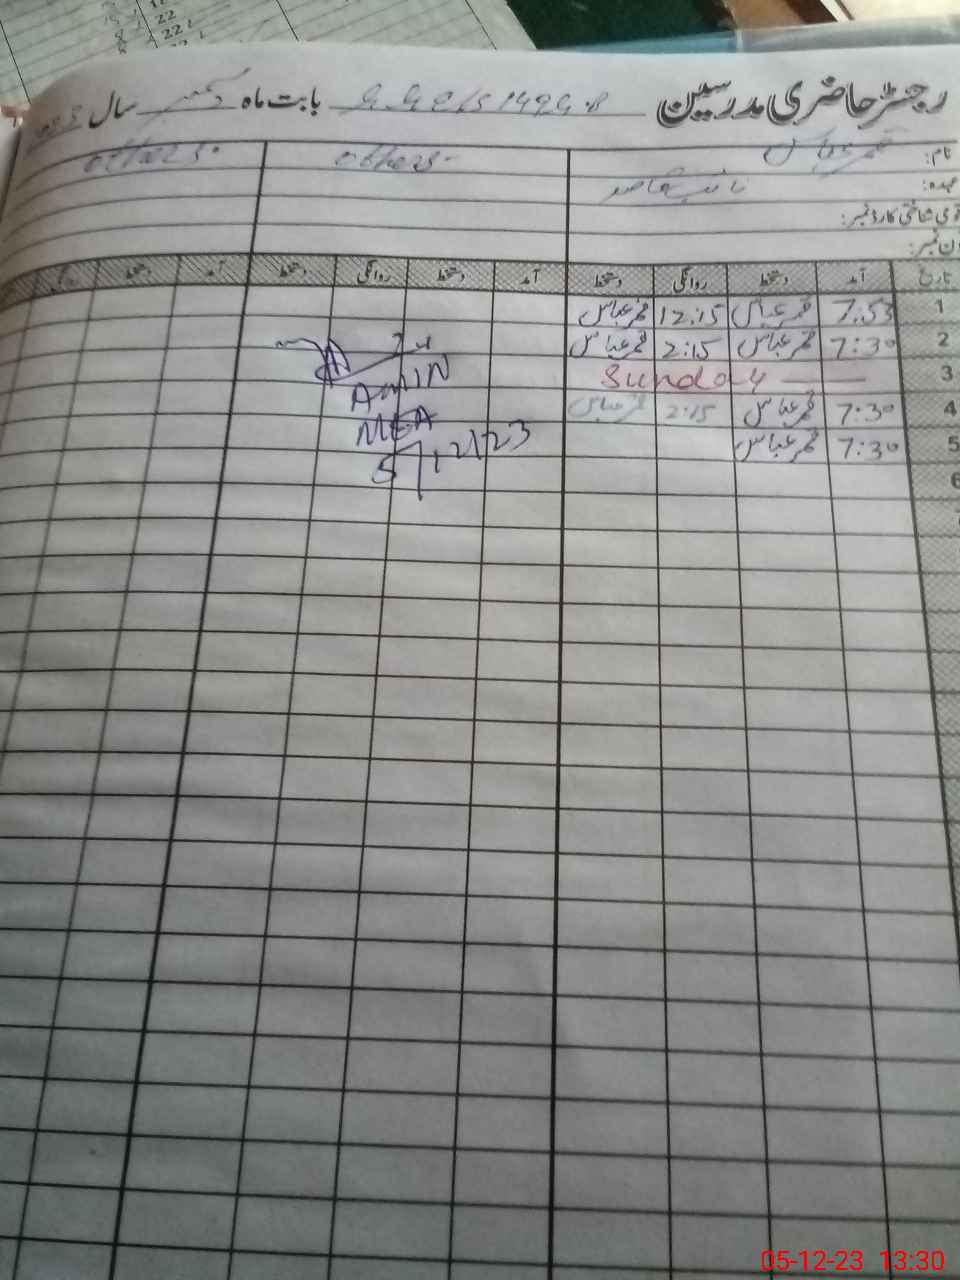 رجسٹر حاضری مدرسین بابت ماہ دسمبر سال
نام: قمر عباس others. others.
عہدہ: نائب قاصد
قومی شناختی کارڈ نمبر:
فون نمبر:
تاریخ آمد دستخط روانگی دستخط آمد دستخط روانگی دستخط آمد دستخط روانگی
1 7:55 قمر عباس 12:15 قمر عباس
2 7:30 قمر عباس 2:15 قمر عباس
3 Sunday
4 7:30 قمر عباس 2:15 قمر عباس
5 7:30 قمر عباس
6
7
AMIN
MEA
5/12/23
05-12-23 13:30